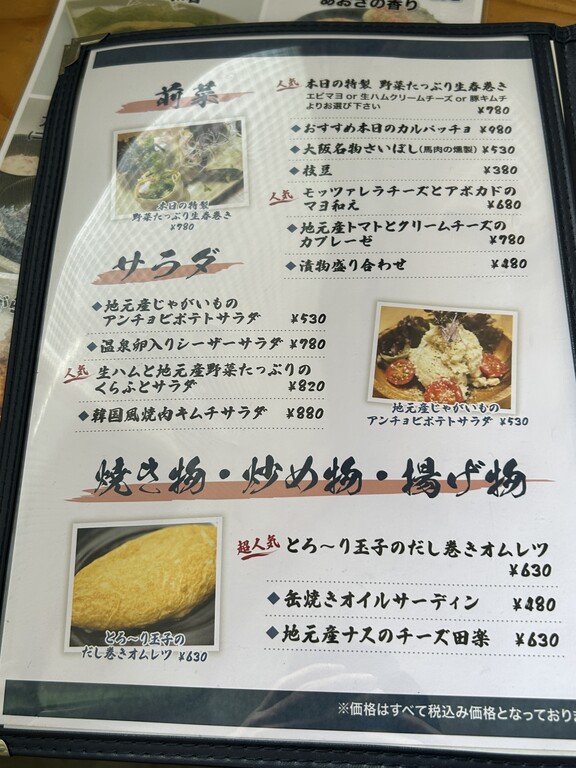 あおさの香り
前菜
人気 本日の特製 野菜たっぷり生春巻き
エビマヨ or 生ハムクリームチーズ or 豚キムチ
よりお選び下さい
¥780
◆おすすめ本日のカルパッチョ ¥980
◆大阪名物さいぼし(馬肉の燻製) ¥530
◆枝豆 ¥380
人気 モッツァレラチーズとアボカドの
マヨ和え ¥680
◆地元産トマトとクリームチーズの
カプレーゼ ¥780
◆漬物盛り合わせ ¥480
本日の特製
野菜たっぷり生春巻き
¥780
サラダ
◆地元産じゃがいもの
アンチョビポテトサラダ ¥530
◆温泉卵入りシーザーサラダ ¥780
人気 生ハムと地元産野菜たっぷりの
くらふとサラダ ¥820
◆韓国風焼肉キムチサラダ ¥880
地元産じゃがいもの
アンチョビポテトサラダ ¥530
焼き物・炒め物・揚げ物
超人気 とろ〜り玉子のだし巻きオムレツ
¥630
◆缶焼きオイルサーディン ¥480
◆地元産ナスのチーズ田楽 ¥630
とろ〜り玉子の
だし巻きオムレツ ¥630
※価格はすべて税込み価格となっており